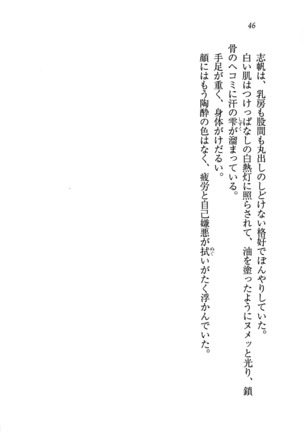 46
志帆は、乳房も股間も丸出しのしどけない格好でぼんやりしていた。
白い肌はつけっぱなしの白熱灯に照らされて、油を塗ったようにヌメッと光り、鎖
骨のヘコミに汗の雫が溜まっている。
手足が重く、身体がけだるい。
顔にはもう陶酔の色はなく、疲労と自己嫌悪が拭いがたく浮かんでいた。